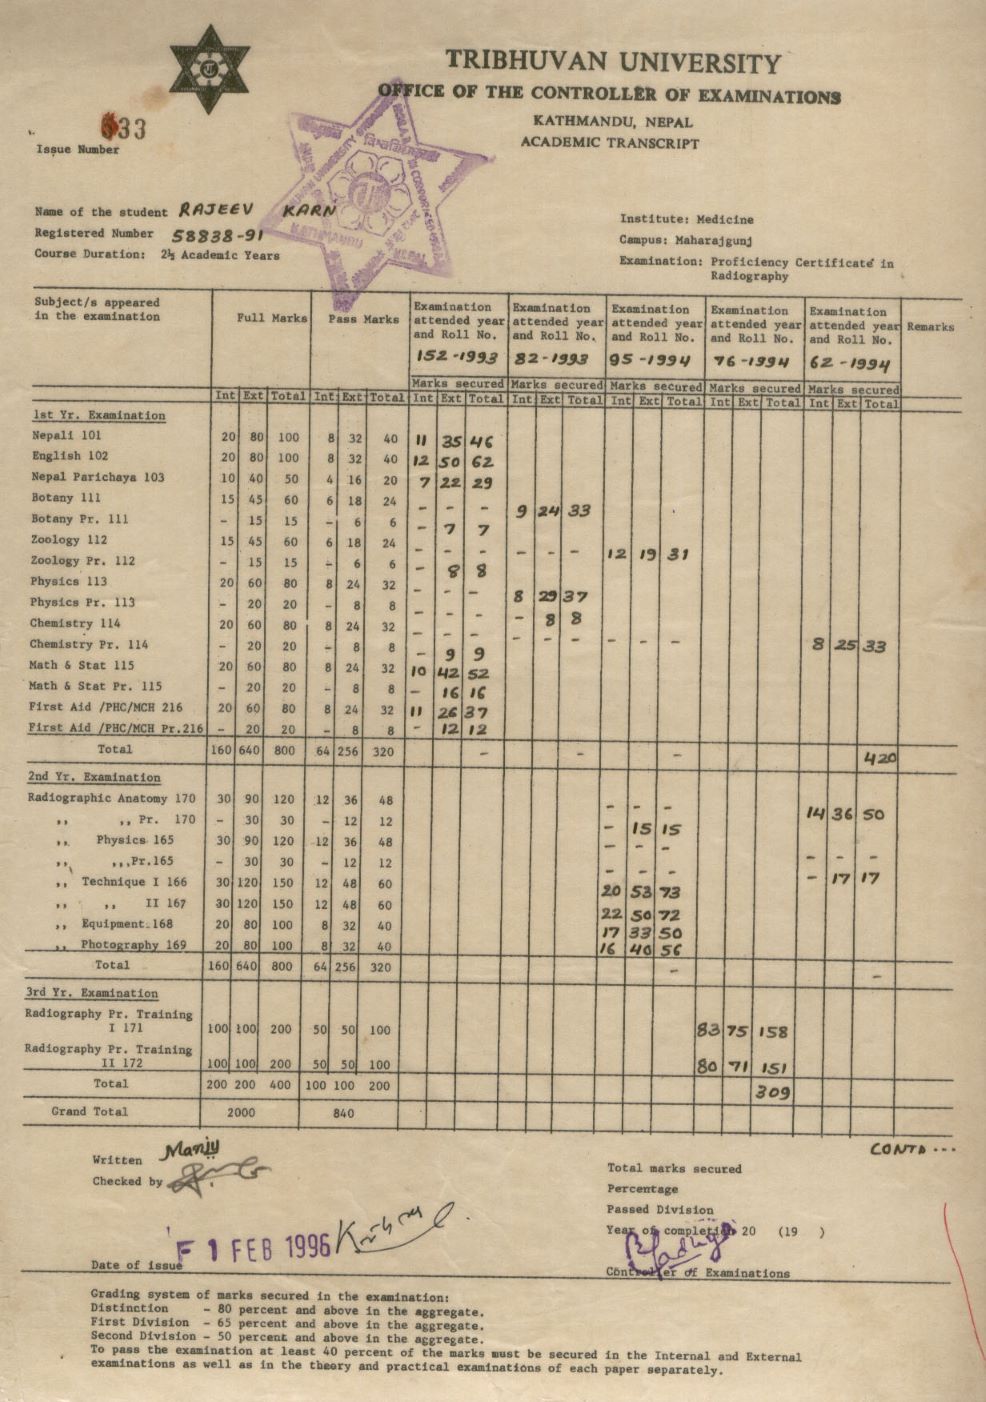 TRIBHUVAN UNIVERSITY
OFFICE OF THE CONTROLLER OF EXAMINATIONS
KATHMANDU, NEPAL
ACADEMIC TRANSCRIPT
33
Issue Number
Name of the student RAJEEV KARN
Registered Number 58838-91
Course Duration: 2½ Academic Years
Institute: Medicine
Campus: Maharajgunj
Examination: Proficiency Certificate in
Radiography
KATHMANDU NEPAL
Subject/s appeared in the examination Full Marks Pass Marks Examination attended year and Roll No. Examination attended year and Roll No. Examination attended year and Roll No. Examination attended year and Roll No. Examination attended year and Roll No. Remarks
152-1993 82-1993 95-1994 76-1994 62-1994
Marks secured Marks secured Marks secured Marks secured Marks secured
Int Ext Total Int Ext Total Int Ext Total Int Ext Total Int Ext Total Int Ext Total Int Ext Total
1st Yr. Examination
Nepali 101 20 80 100 8 32 40 11 35 46
English 102 20 80 100 8 32 40 12 50 62
Nepal Parichaya 103 10 40 50 4 16 20 7 22 29
Botany 111 15 45 60 6 18 24 - - - 9 24 33
Botany Pr. 111 - 15 15 - 6 6 - 7 7
Zoology 112 15 45 60 6 18 24 - - - - - - 12 19 31
Zoology Pr. 112 - 15 15 - 6 6 - 8 8
Physics 113 20 60 80 8 24 32 - - - 8 29 37
Physics Pr. 113 - 20 20 - 8 8 - - - - 8 8
Chemistry 114 20 60 80 8 24 32 - - - - - - - - - 8 25 33
Chemistry Pr. 114 - 20 20 - 8 8 - 9 9
Math & Stat 115 20 60 80 8 24 32 10 42 52
Math & Stat Pr. 115 - 20 20 - 8 8 - 16 16
First Aid /PHC/MCH 216 20 60 80 8 24 32 11 26 37
First Aid /PHC/MCH Pr.216 - 20 20 - 8 8 - 12 12
Total 160 640 800 64 256 320 - - - 420
2nd Yr. Examination
Radiographic Anatomy 170 30 90 120 12 36 48 - - - 14 36 50
,, ,, Pr. 170 - 30 30 - 12 12 - 15 15
,, Physics 165 30 90 120 12 36 48 - - - - - -
,, ,,Pr.165 - 30 30 - 12 12 - - - - 17 17
,, Technique I 166 30 120 150 12 48 60 20 53 73
,, ,, II 167 30 120 150 12 48 60 22 50 72
,, Equipment 168 20 80 100 8 32 40 17 33 50
,, Photography 169 20 80 100 8 32 40 16 40 56
Total 160 640 800 64 256 320 - -
3rd Yr. Examination
Radiography Pr. Training
I 171 100 100 200 50 50 100 83 75 158
Radiography Pr. Training
II 172 100 100 200 50 50 100 80 71 151
Total 200 200 400 100 100 200 309
Grand Total 2000 840
CONTD ...
Written Manju
Checked by
Total marks secured
Percentage
Passed Division
Year of completion 20 (19 )
Date of issue F 1 FEB 1996
Controller of Examinations
Grading system of marks secured in the examination:
Distinction - 80 percent and above in the aggregate.
First Division - 65 percent and above in the aggregate.
Second Division - 50 percent and above in the aggregate.
To pass the examination at least 40 percent of the marks must be secured in the Internal and External
examinations as well as in the theory and practical examinations of each paper separately.